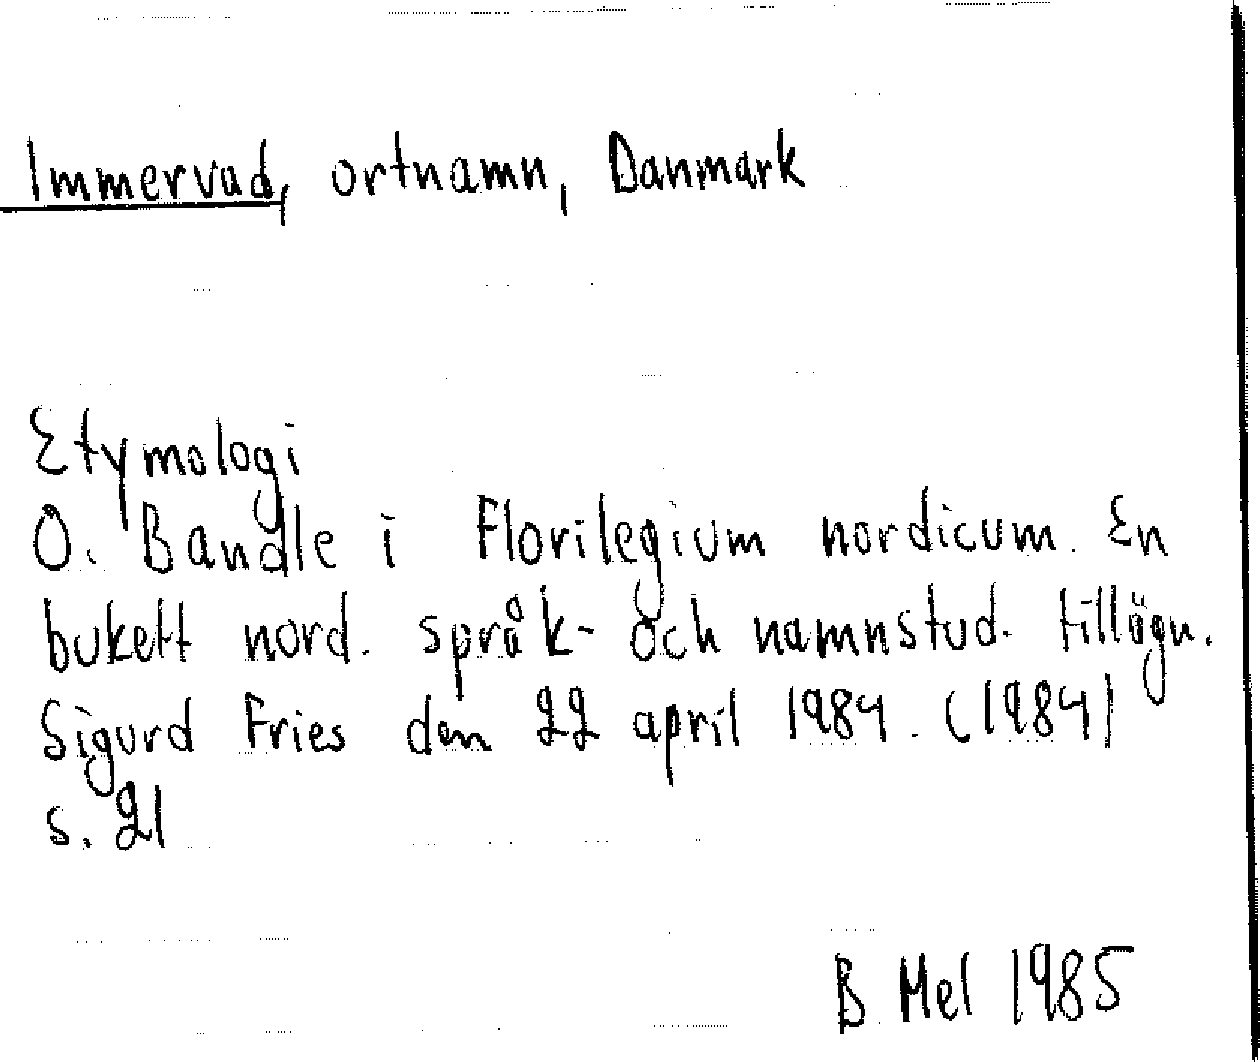 Immervad, ortnamn, Danmark
Etymologi
O. Bandle i Florilegium nordicum. En
bukett nord. språk- och namnstud. tillägn.
Sigurd Fries den 22 april 1984. (1984)
s. 21
B Mel 1985